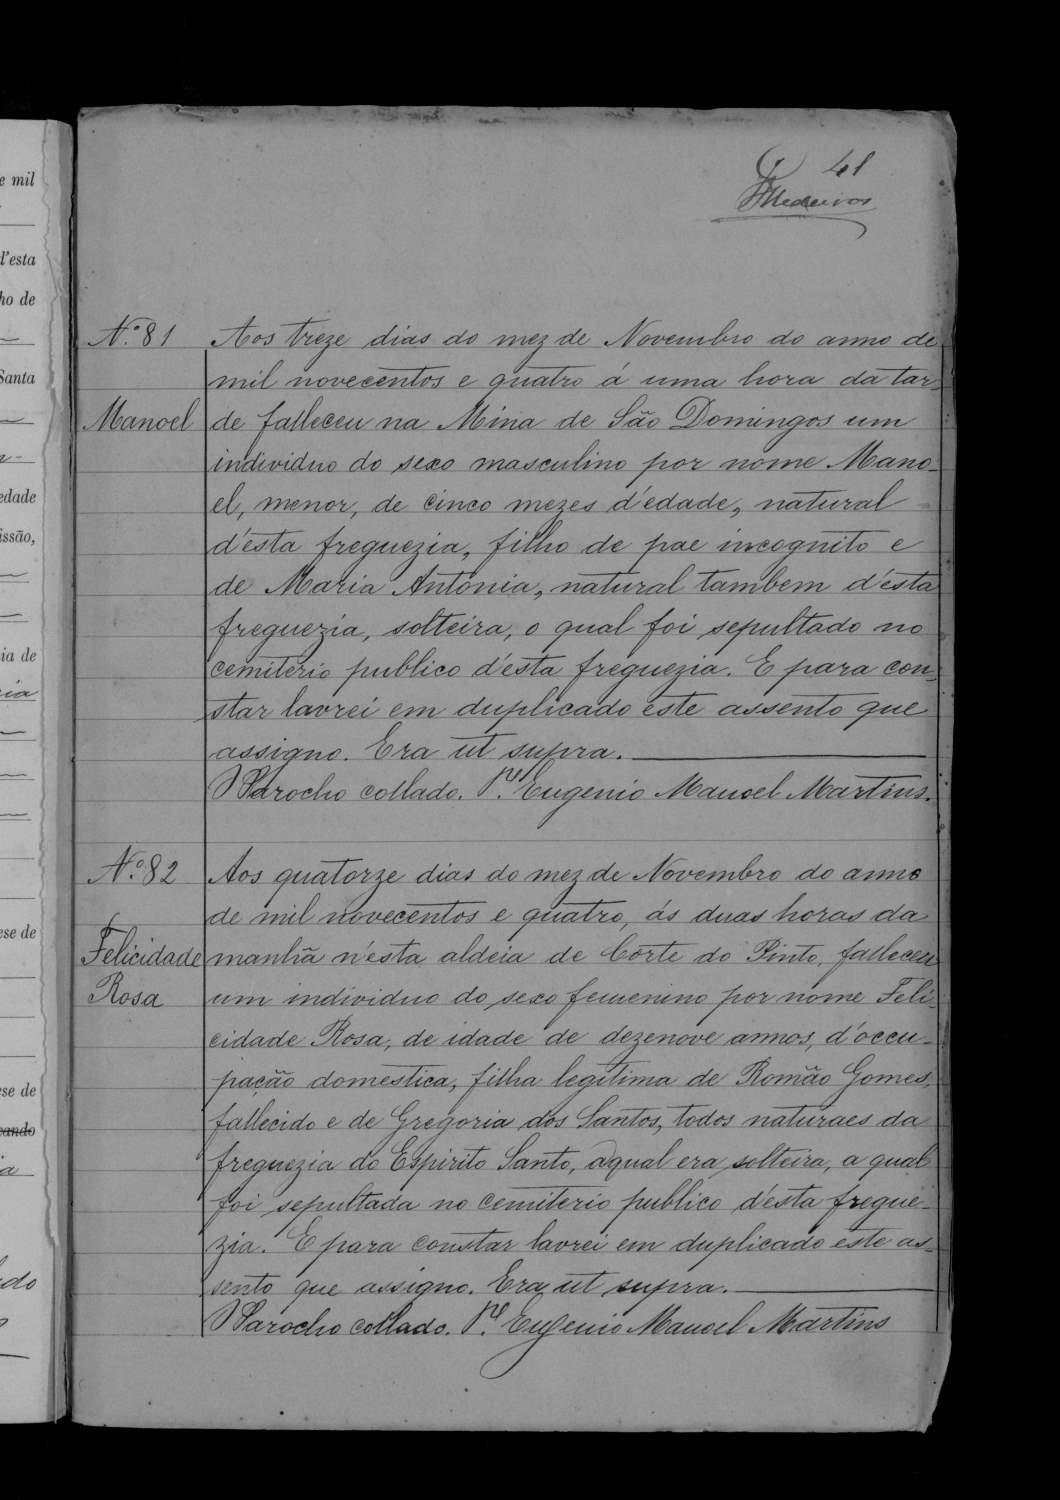 e mil
d'esta
ho de
Santa
edade
issão,
ia de
ria
ese de
ese de
cando
ia
do
41
Medeiros
N.º 81
Manoel
Aos treze dias do mez de Novembro do anno de
mil novecentos e quatro á uma hora da tar-
de falleceu na Mina de São Domingos um
individuo do sexo masculino por nome Mano-
el, menor, de cinco mezes d'edade, natural
d'esta freguezia, filho de pae incognito e
de Maria Antonia, natural tambem d'esta
freguezia, solteira, o qual foi sepultado no
cemiterio publico d'esta freguezia. E para con-
star lavrei em duplicado este assento que
assigno. Era ut supra.
O Parocho collado. P.e Eugenio Manoel Martins.
N.º 82
Felicidade
Rosa
Aos quatorze dias do mez de Novembro do anno
de mil novecentos e quatro, ás duas horas da
manhã n'esta aldeia de Côrte do Pinto, falleceu
um individuo do sexo femenino por nome Feli-
cidade Rosa, de idade de dezenove annos, d'occu-
pação domestica, filha legitima de Romão Gomes,
fallecido e de Gregoria dos Santos, todos naturaes da
freguezia do Espirito Santo, aqual era solteira, a qual
foi sepultada no cemiterio publico d'esta fregue-
zia. E para constar lavrei em duplicado este as-
sento que assigno. Era ut supra.
O Parocho collado. P.e Eugenio Manoel Martins